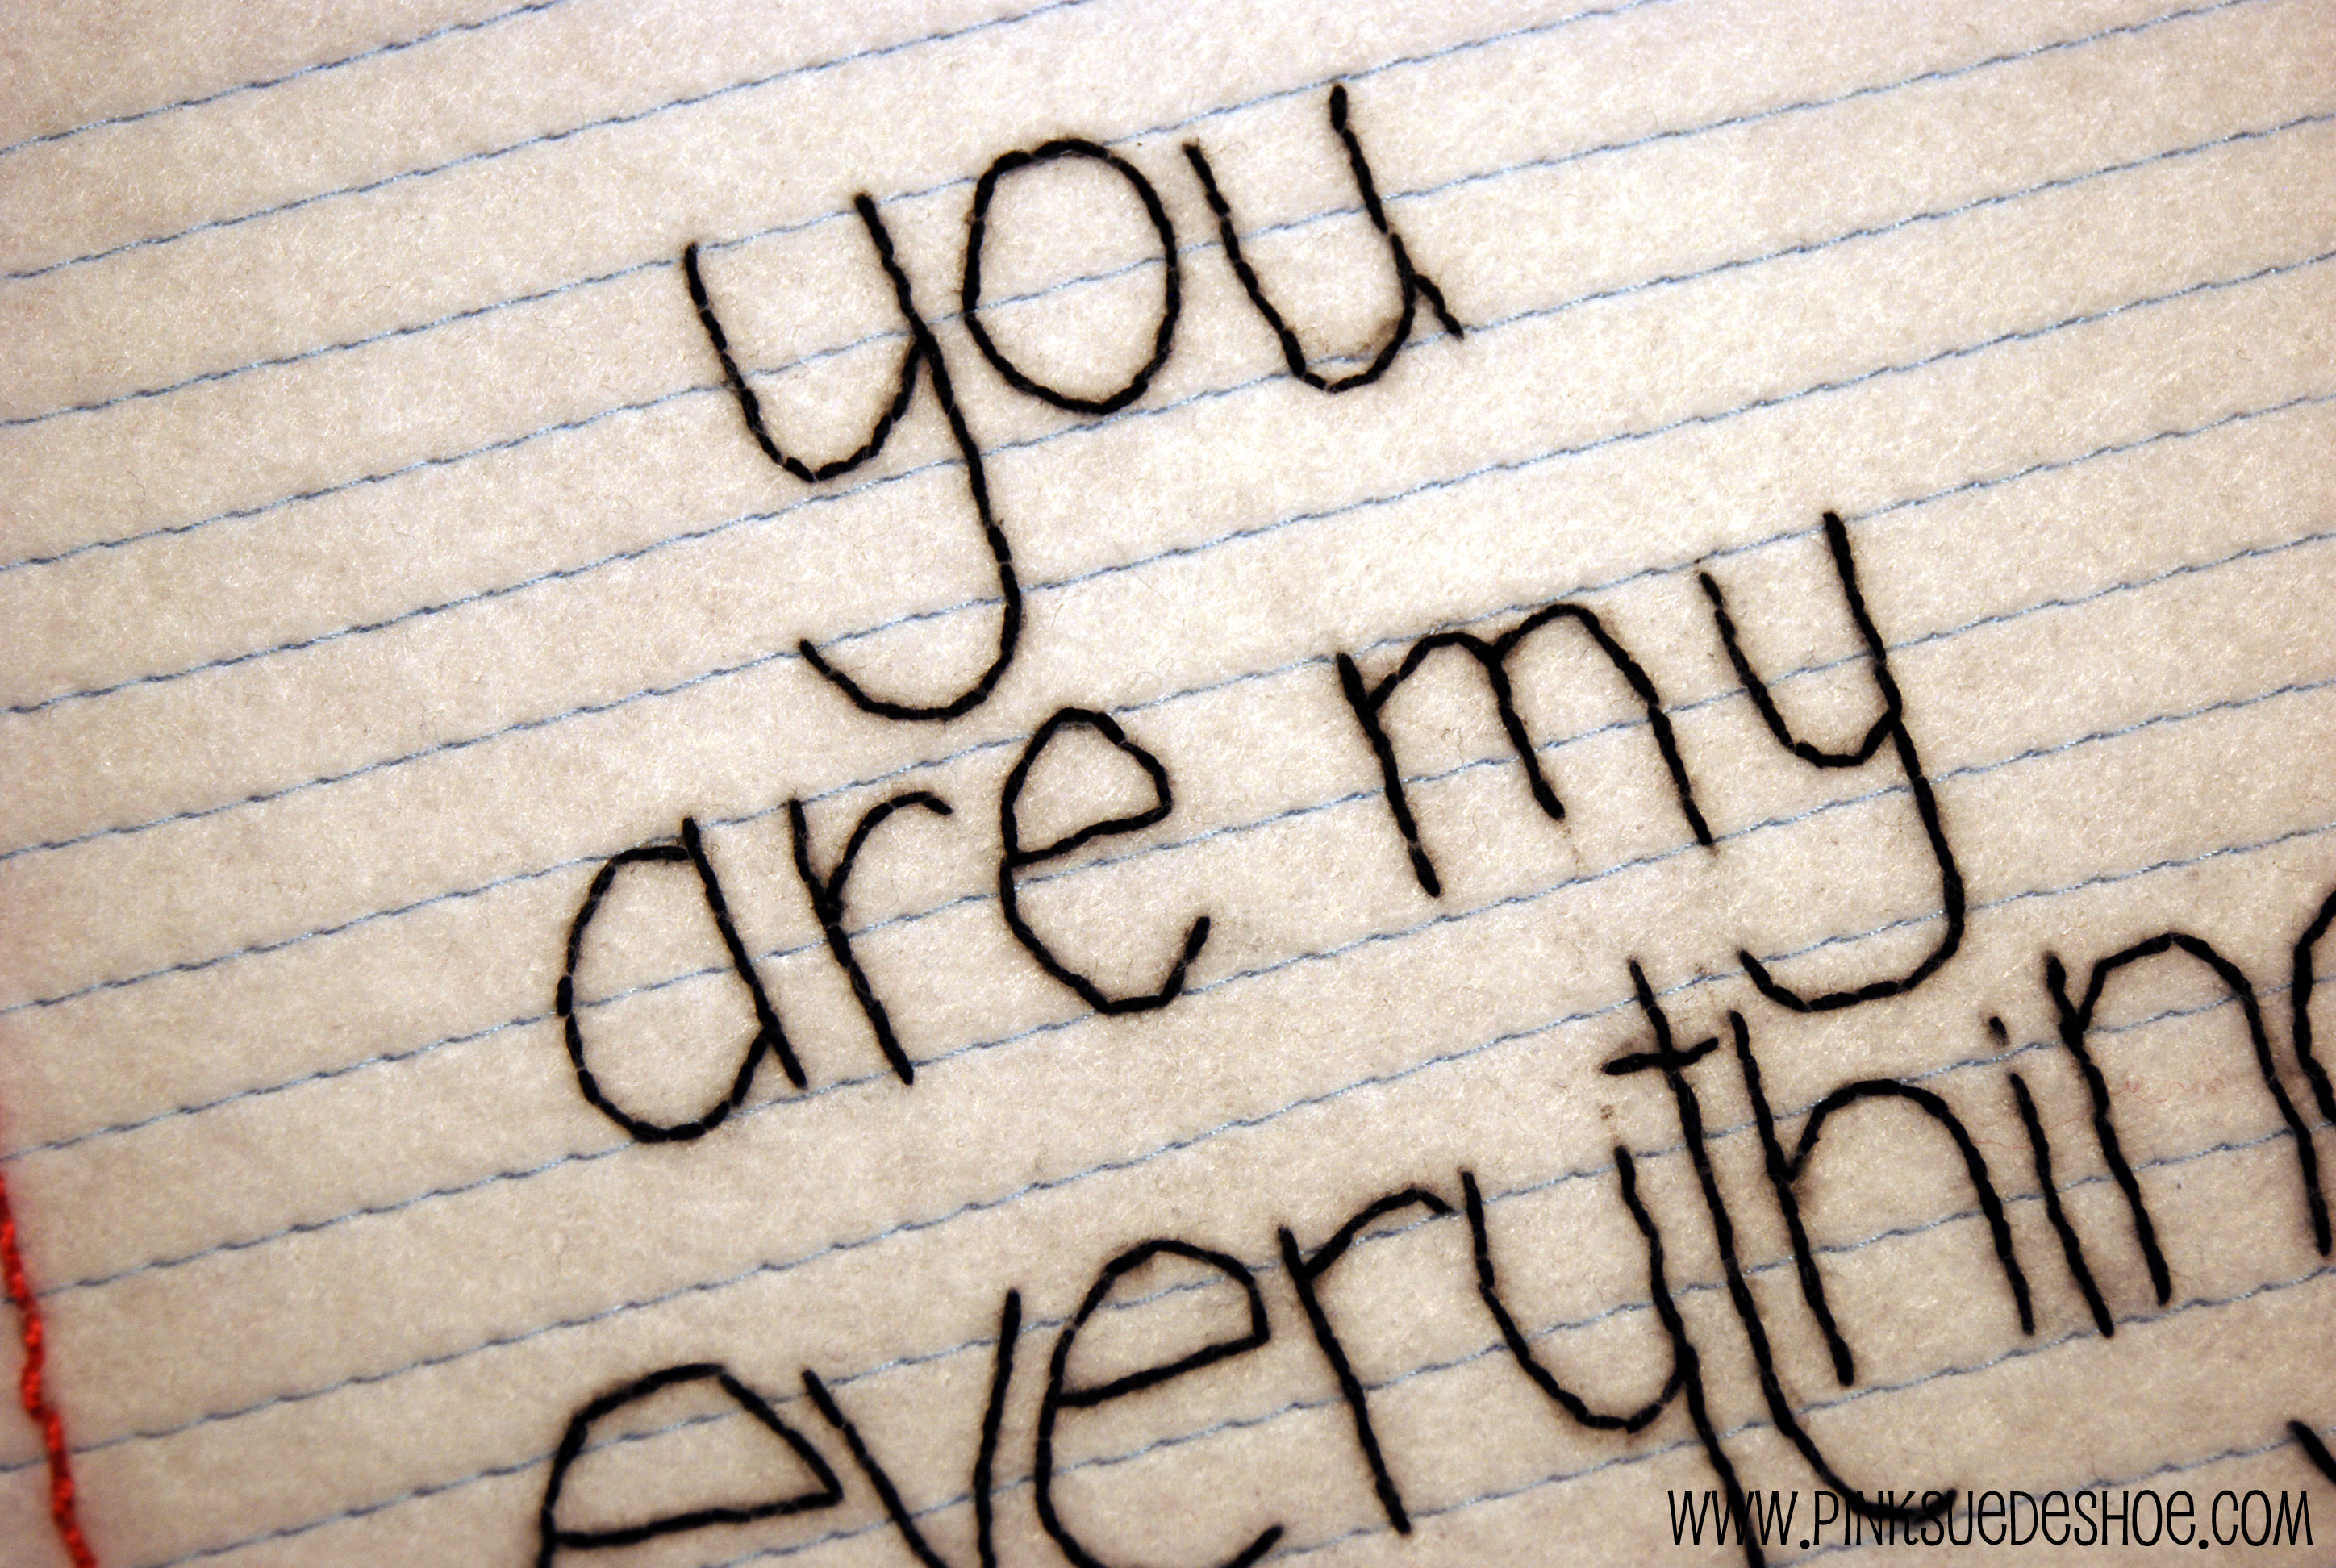 you
are my
everything
WWW.PINKSUEDESHOE.COM